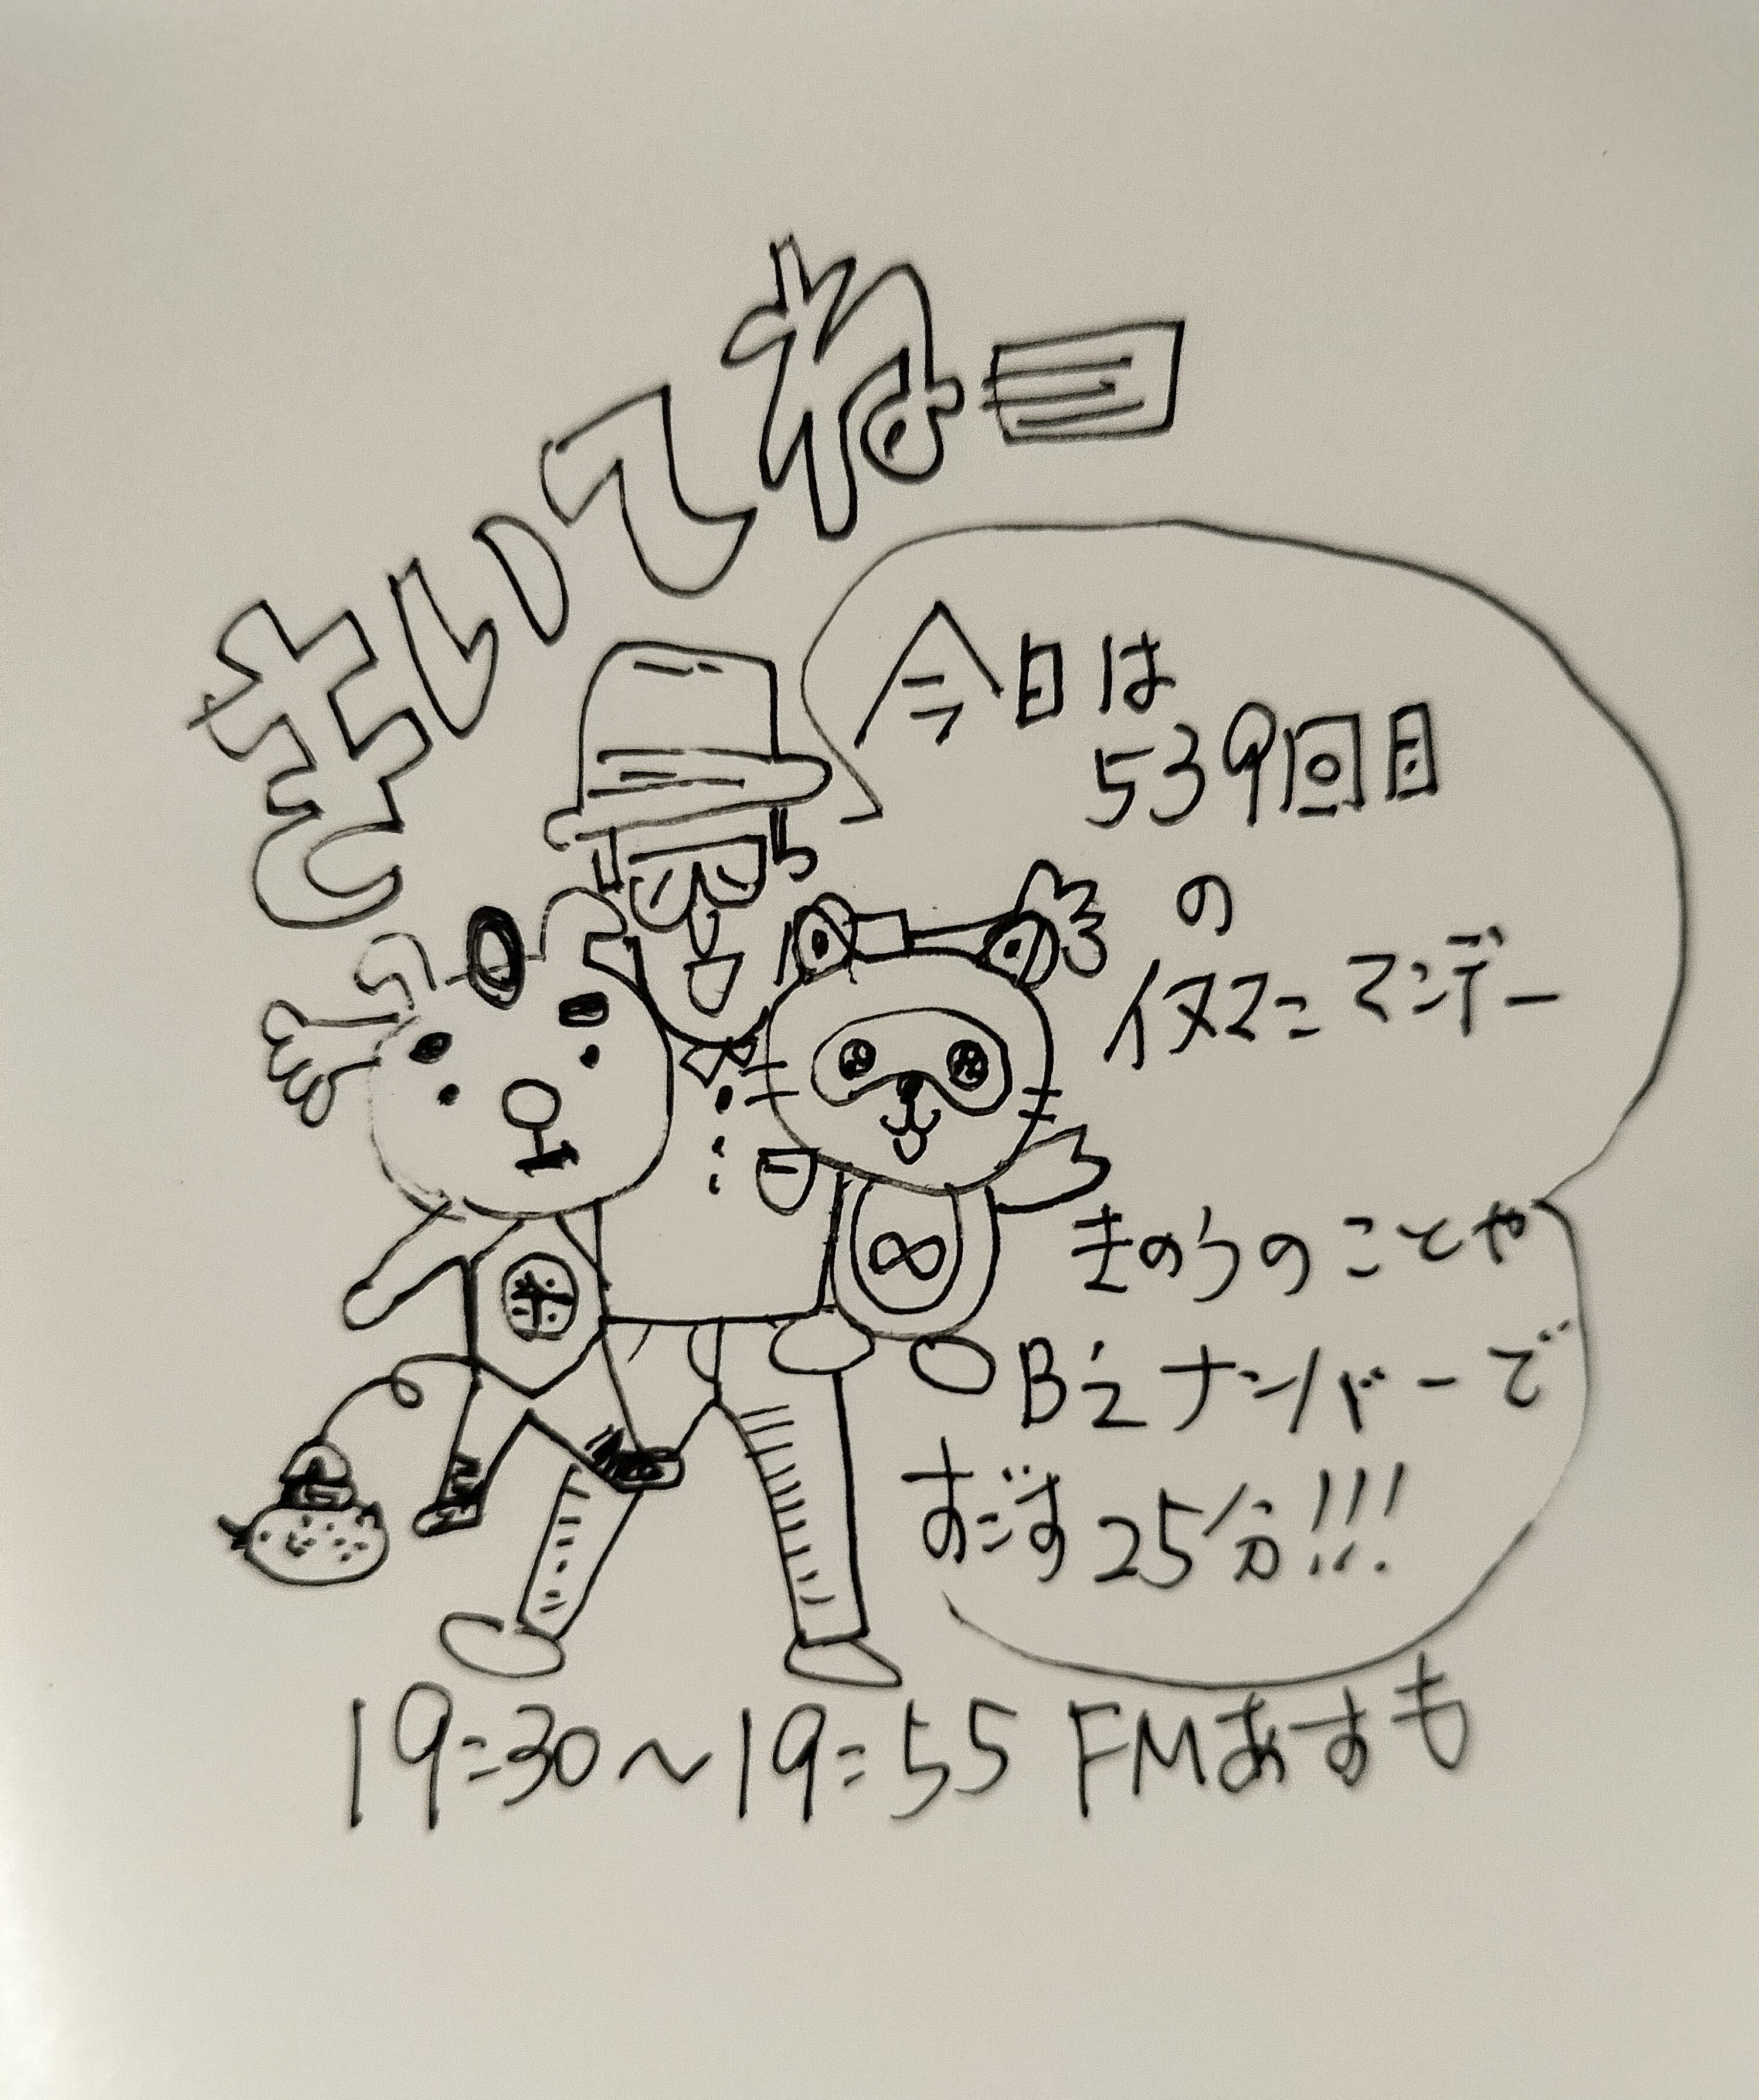 きいてねー
今日は
539回目
の
イヌマニマンデー
きのうのことや
B'zナンバーで
すごす25分!!!
米
19:30~19:55 FMあすも